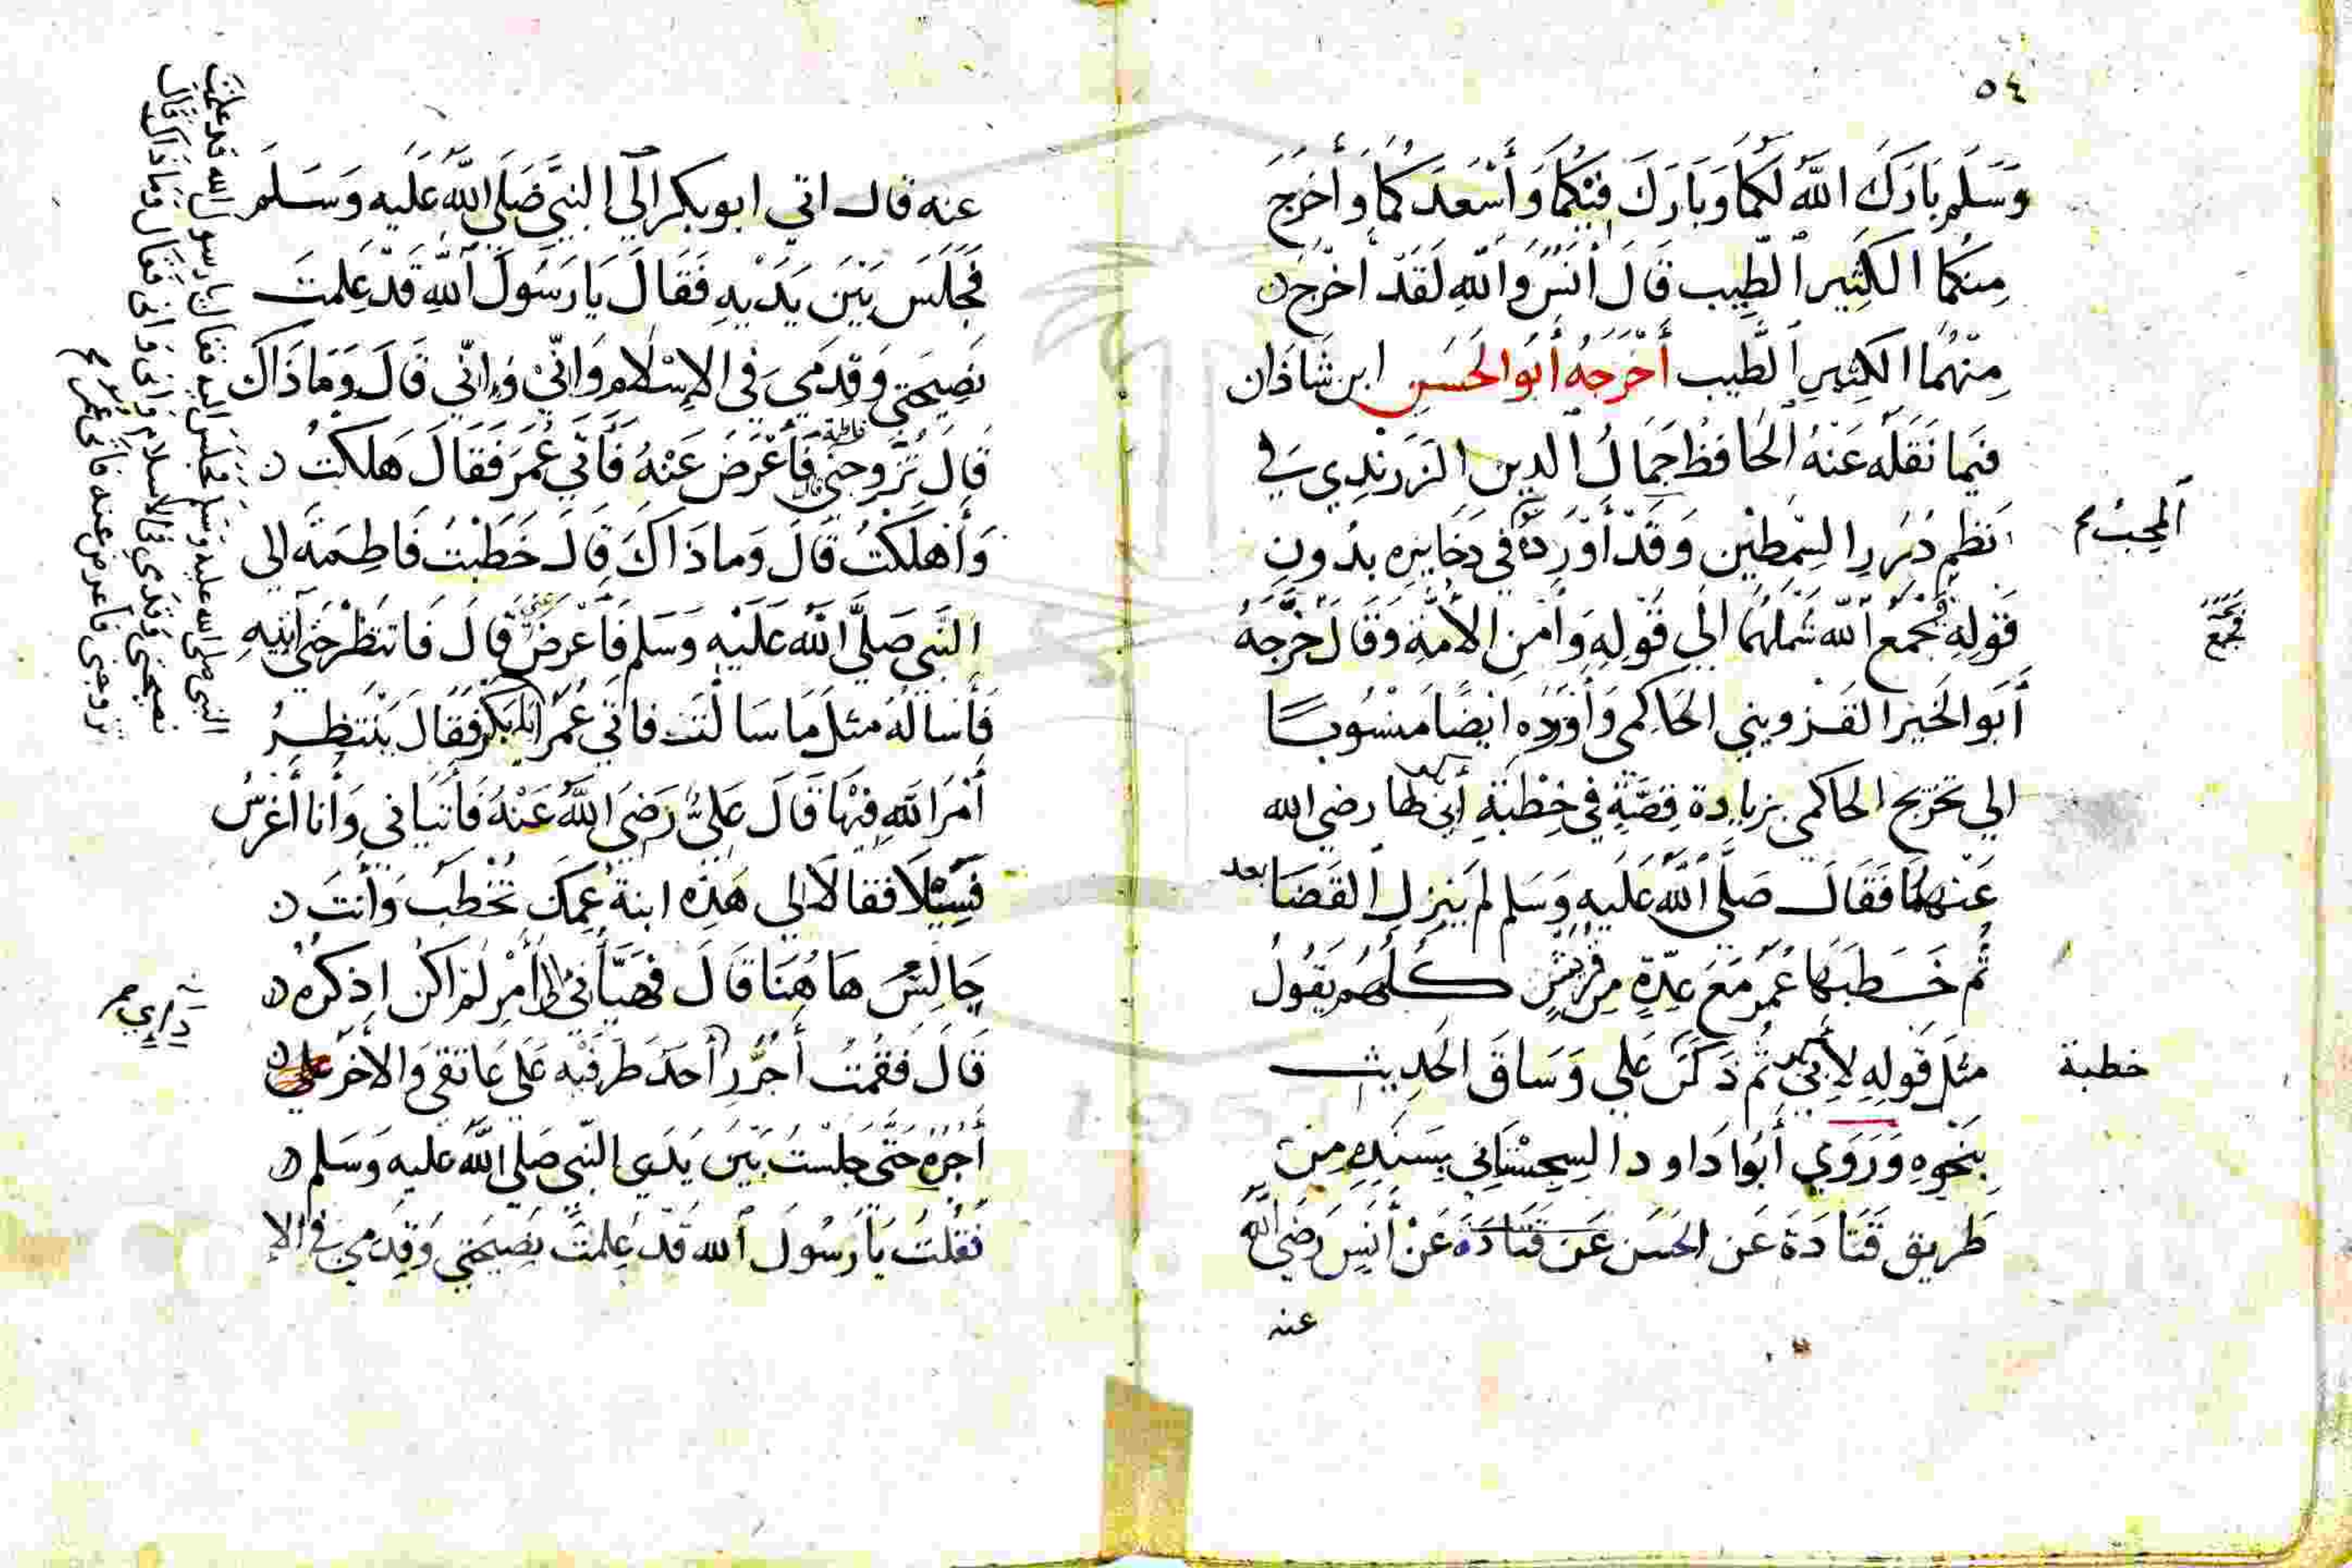 ٥٤
وَسَلَّم بَارَكَ اللَّهُ لَكُمَا وَبَارَكَ فِيْكُمَا وَأَسْعَدَكُمَا وَأَخْرَجَ
مِنكُمَا الكَثِير الطَّيِب قَالَ أَنَسٌ وَاللهِ لَقَدْ اخْرَجَ
مِنْهُمَا الكَثِيرِ الطَّيِب أَخْرَجَهُ أَبُو الحَسَنِ ابن شَاذَان
فِيمَا نَقَلَه عَنْهُ الحَافظُ جَمَالُ الدين الزَرَنْدِي في
نَظْمِ دُرَرِ السِّمْطَيْن وَقَدْ أَوْرَدَهُ في ذخَايِرِه بدُونِ
المُحِبُّ
قَوْلِهِ فَجَمَعَ اللَّه شَمْلَهُمَا إلَي قَوْلِهِ وَأَمْنِ الأُمَّةِ وَقَالَ خَرَّجَهُ
فَجَمَعَ
أَبُو الخَيْرِ القَزويني الحَاكِمى وَأَوْرَدَه ايْضًا مَنْسُوبًا
الي تخريج الحاكمى بزيادة قِصَّةٍ في خِطْبَةِ أَبي رضي الله
عَنْهُمَا فَقَالَ صَلَّى اللَّهُ عَلَيهِ وَسَلم لم يَنْزِلِ القَضَا بعد
ثُم خَطَبَهَا عُمَرُ مَعَ عِدّةٍ مِن قُرَيْشٍ كُلُّهُم يَقُولُ
مثلَ قَولِهِ لأَبي بكر ثُم ذَكَرَ عَلي وَسَاقَ الحَدِيث
خطبة
بِنَحْوِهِ وَرَوَي أَبُوا دَاود السِجِسْتَانِي بسَنَدِهِ مِنْ
طَريق قَتَادَةَ عَن الحَسَن عَن قَتَادَة عَنْ أَنَسٍ رَضِيَ اللَّهُ
عنه
عنه قال اتي ابو بكر الَى النَّبِيِّ صَلَى اللَّه عَلَيه وَسَلَّمَ
فَجَلَسَ بَيْنَ يَدَيْهِ فَقَالَ يَا رَسُولَ اللَّهِ قَدْ عَلِمْتَ
نَصِيحَتِي وَقِدَمِي في الإسْلَام وَانِّي وَانّي قَالَ وَمَا ذَاكَ
قَالَ تُزَوِّجني فاطمة فَأَعْرَضَ عَنْهُ فَأَتَي عُمَرَ فَقَالَ هَلكْتُ
وَأَهلَكْتُ قَالَ وَمَا ذَاكَ قالَ خَطَبْتُ فَاطِمَةَ الى
النَّبي صَلَّى اللَّه عَلَيْهِ وَسَلم فَأَعْرَضَ عني قَالَ فَانتَظرْ حَتى آتيه
فَأَسالهُ مثلَ مَا سَالتَ فاتي عُمَر أبا بكر فَقَالَ يَنْتَظِرُ
أَمْرَ اللَّهِ فِيْهَا قَالَ عَليٌّ رَضِيَ اللَّهُ عَنْهُ فَأَتَيَاني وَأَنا أَغرِسُ
فَسِيْلًا فقالا لي هَذِه ابنةُ عَمِكَ تُخْطَبُ وَأَنتَ
جَالِسٌ هَاهُنَا قَالَ فَهَيَّأَني إلى أَمْرٍ لَم اكُن اذكرُه
قَالَ فَقُمْتُ أَجُرُّ أَحَدَ طَرفَيْه عَلَى عَاتقي وَالأَخَرُ عَلى
رداي
أَجُرُّهُ حَتَّى جَلَسْتُ بَيْنَ يَدَي النَّبي صَلَي اللَّهُ عَليه وَسَلم
فَقُلتُ يَا رَسُولَ اللَّه قَدْ عَلِمْتَ نَصِيحَتي وَقِدَمِي في الا
النبي صلى الله عليه وسلم فجلس اليه فقال يا رسول الله قد علمت
نصيحتي وقدمي في الاسلام وانى وانى فقال وما ذاك قال
تزوجني فاعرض عنه فاتى عمر